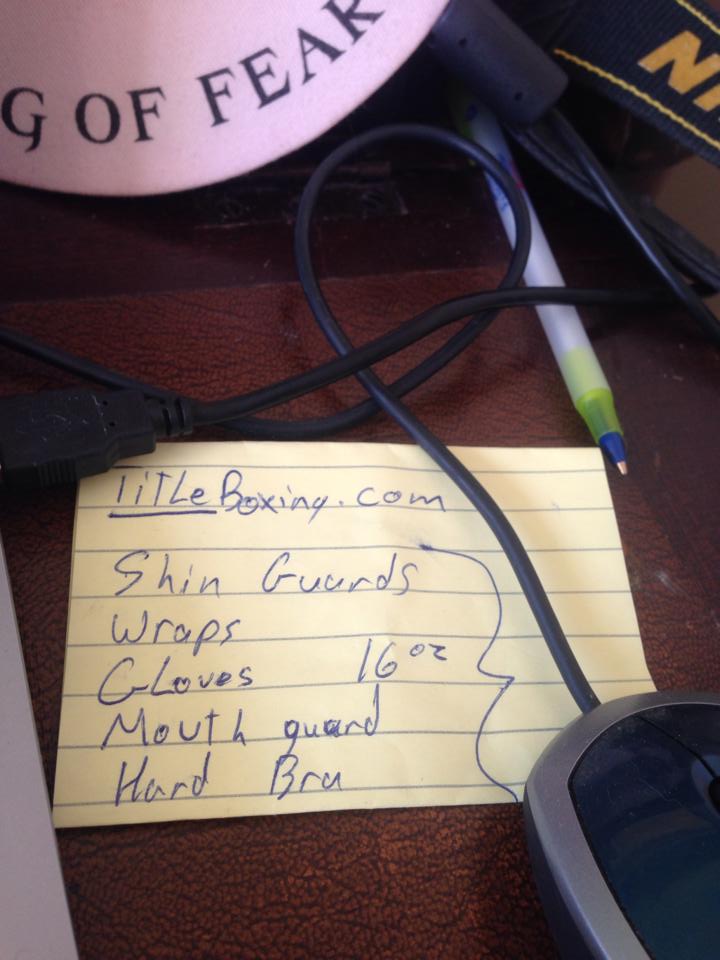 G OF FEAR
NI
TiTLeBoxing.com
Shin Guards
Wraps
Gloves 16 oz
Mouth guard
Hard Bra